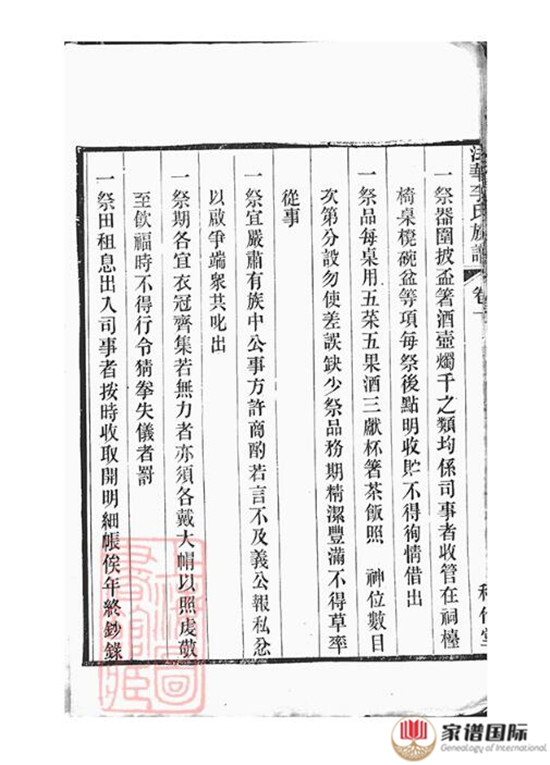 法華李氏族譜 卷一
一祭器圍披盃箸酒壺燭千之類均係司事者收管在祠檯
椅桌櫈碗盆等項每祭後點明收貯不得徇情借出
一祭品每桌用五菜五果酒三獻杯箸茶飯照　神位數目
次第分設勿使差誤缺少祭品務期精潔豐滿不得草率
從事
一祭宜嚴肅有族中公事方許商酌若言不及義公報私忿
以啟爭端衆共叱出
一祭期各宜衣冠齊集若無力者亦須各戴大帽以照虔敬
至飲福時不得行令猜拳失儀者罰
一祭田租息出入司事者按時收取開明細帳俟年終鈔錄
家谱国际
Genealogy of International